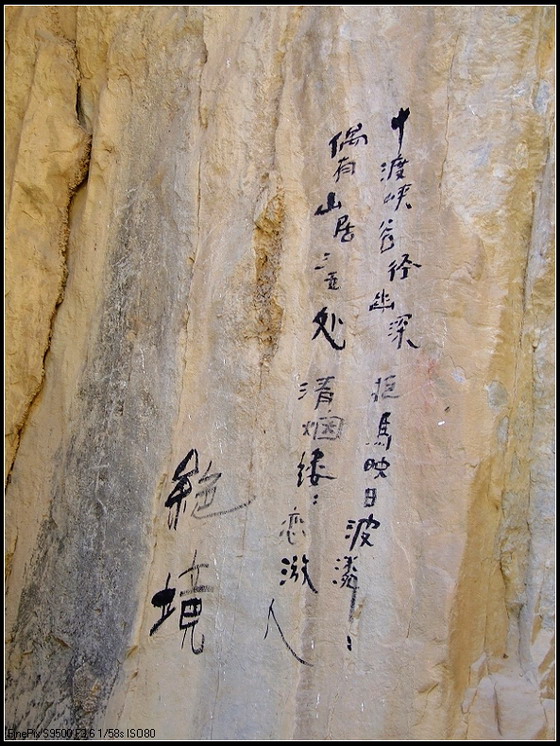 中渡峡谷径幽深 拒馬映日波潾：
偶有山居三五处 清烟缕：恋游人
絶境
FinePix S9500 F3.6 1/58s ISO80